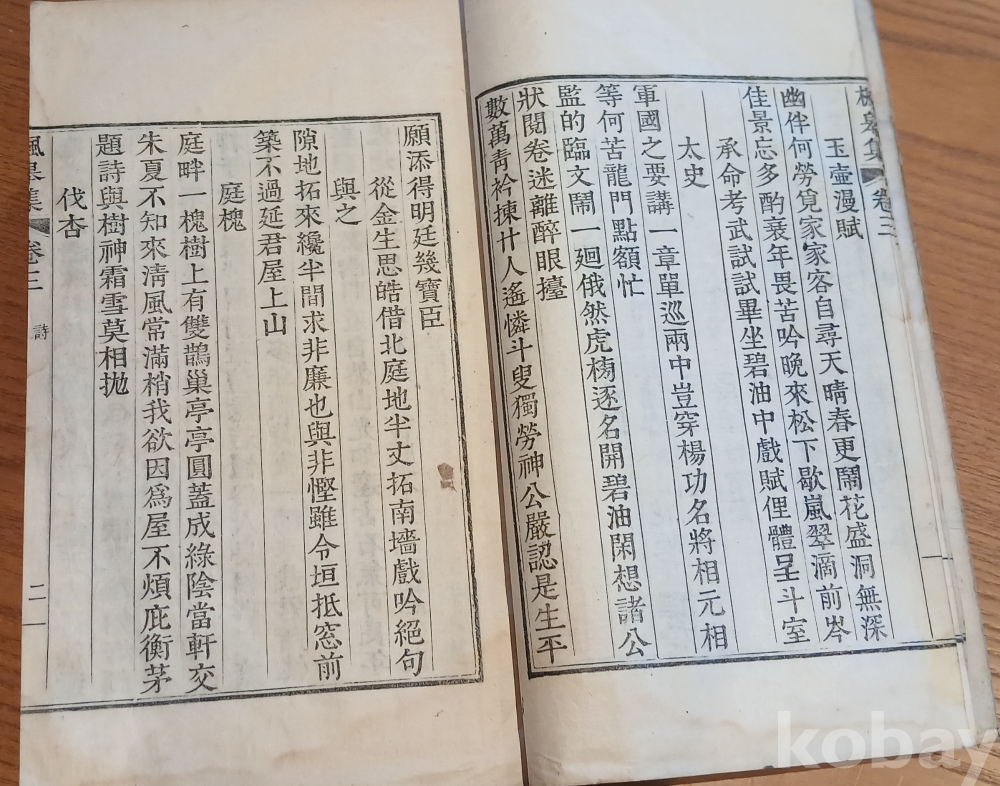 楓皐集 卷三 一
玉壺漫賦
幽伴何勞覓家家客自尋天晴春更鬧花盛洞無深
佳景忘多酌衰年畏苦吟晚來松下歇嵐翠滴前岑
承命考武試試畢坐碧油中戲賦俚體呈斗室
太史
軍國之要講一章單巡兩中豈穿楊功名將相元相
等何苦龍門點額忙
監的臨文鬧一廻俄然虎榜逐名開碧油閑想諸公
狀閱卷迷離醉眼擡
數萬青衿揀廿人遙憐斗叟獨勞神公嚴認是生平
願添得明廷幾寶臣
從金生思皓借北庭地半丈拓南墻戲吟絕句
與之
隙地拓來纔半間求非廉也與非慳雖令垣抵窓前
築不過延君屋上山
庭槐
庭畔一槐樹上有雙鵲巢亭亭圓蓋成綠陰當軒交
朱夏不知來淸風常滿梢我欲因爲屋不煩庇衡茅
題詩與樹神霜雪莫相抛
伐杏
楓皐集 卷三 詩 二
kobay